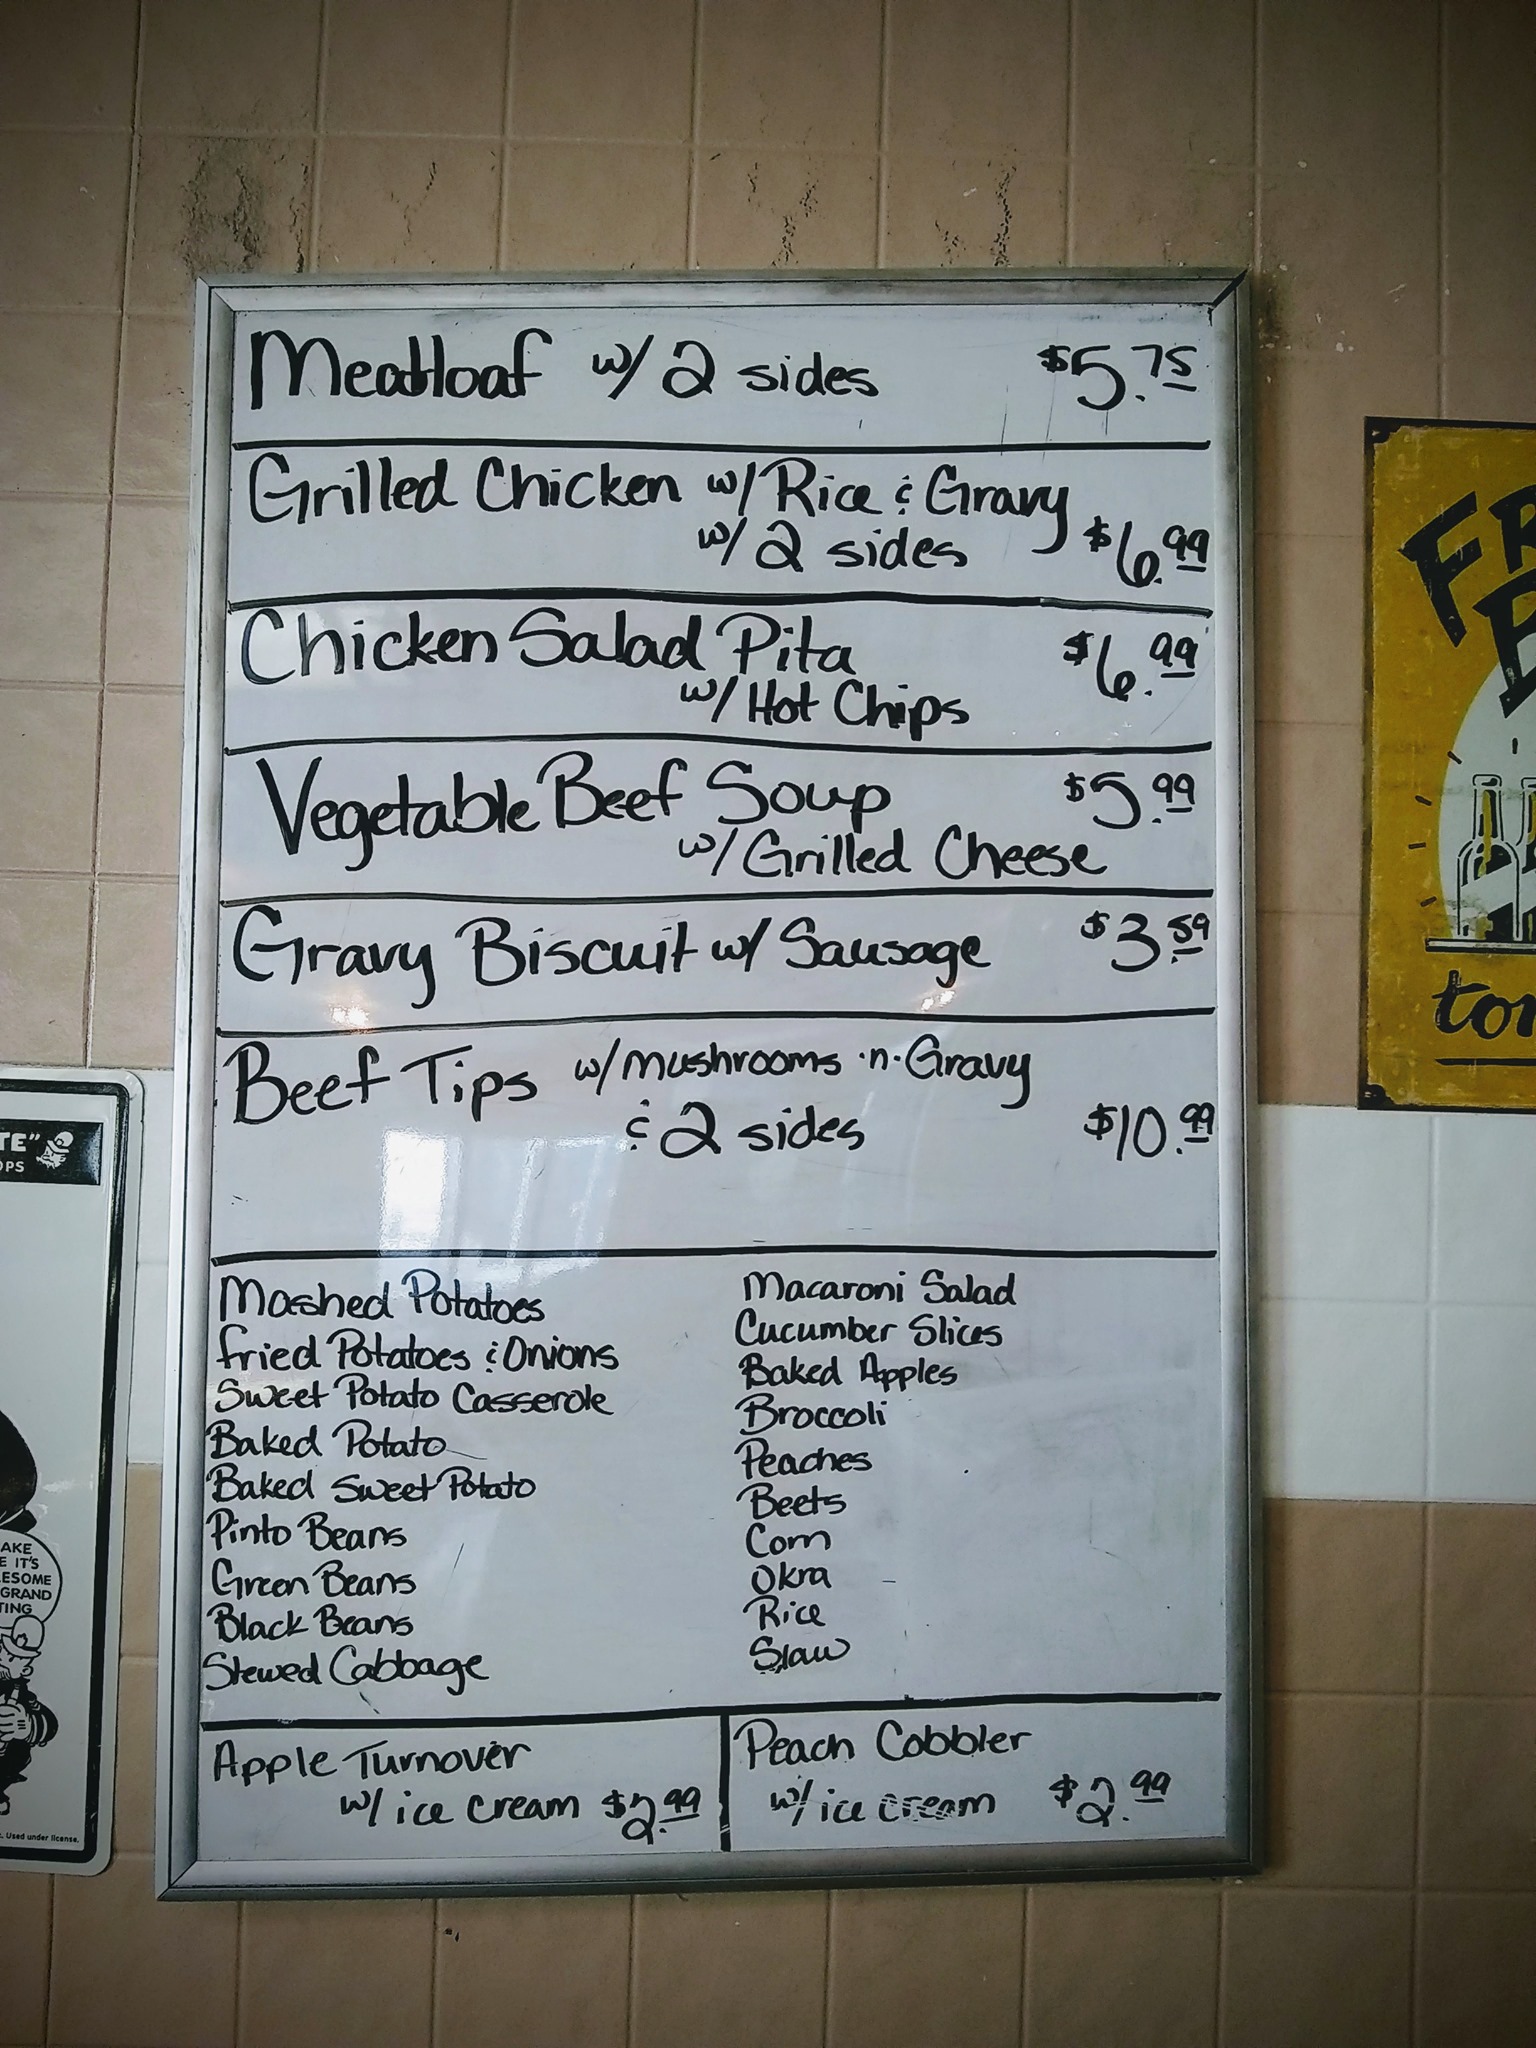 Meatloaf w/ 2 sides $5.75
Grilled Chicken w/ Rice & Gravy
w/ 2 sides $6.99
Chicken Salad Pita $6.99
w/ Hot Chips
Vegetable Beef Soup $5.99
w/ Grilled Cheese
Gravy Biscuit w/ Sausage $3.59
Beef Tips w/ Mushrooms 'n' Gravy
& 2 sides $10.99
Mashed Potatoes
Fried Potatoes & Onions
Sweet Potato Casserole
Baked Potato
Baked Sweet Potato
Pinto Beans
Green Beans
Black Beans
Stewed Cabbage
Macaroni Salad
Cucumber Slices
Baked Apples
Broccoli
Peaches
Beets
Corn
Okra
Rice
Slaw
Apple Turnover
w/ ice cream $2.99
Peach Cobbler
w/ ice cream $2.99
TE"
OPS
AKE
E IT'S
ESOME
GRAND
TING
. Used under license.
FR
B
tor